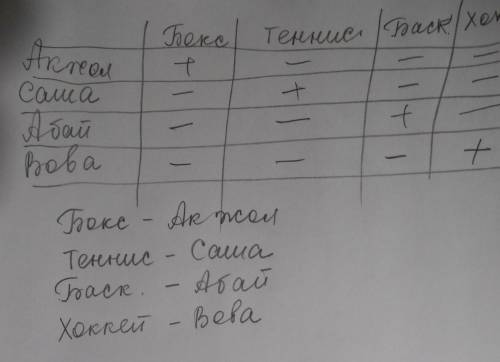 Бокс Теннис. Баск. Хок
Акжол + - - -
Саша - + - -
Абай - - + -
Вова - - - +
Бокс - Акжол
Теннис - Саша
Баск. - Абай
Хоккей - Вова